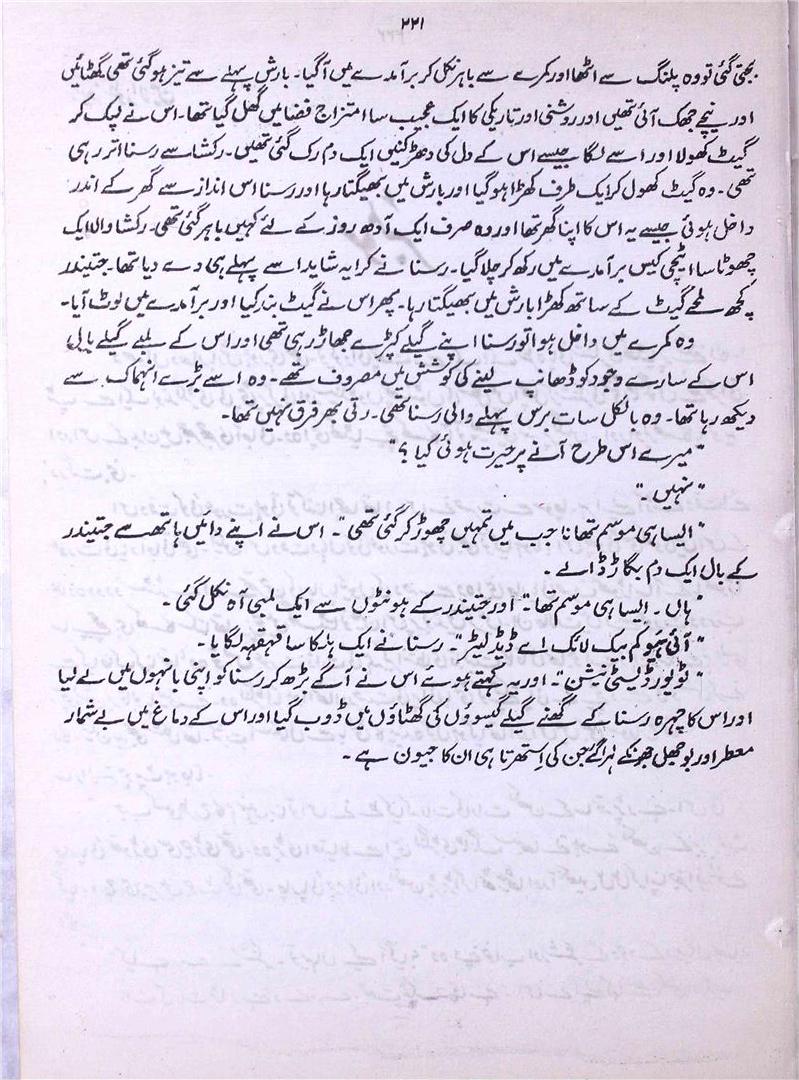 ۲۲۱
بجتی گئی تو وہ پلنگ سے اٹھا اور کمرے سے باہر نکل کر برآمدے میں آ گیا۔ بارش پہلے سے تیز ہو گئی تھی، گھٹائیں
اور نیچے جھک آئی تھیں اور روشنی اور تاریکی کا ایک عجیب سا امتزاج فضا میں گھل گیا تھا۔ اس نے لپک کر
گیٹ کھولا اور اسے لگا جیسے اس کے دل کی دھڑکنیں ایک دم رک گئی تھیں۔ رکشا سے رسنا اتر رہی
تھی۔ وہ گیٹ کھول کر ایک طرف کھڑا ہو گیا اور بارش میں بھیگتا رہا اور رسنا اس انداز سے گھر کے اندر
داخل ہوئی جیسے یہ اس کا اپنا گھر تھا اور وہ صرف ایک آدھ روز کے لئے کہیں باہر گئی تھی۔ رکشا والا ایک
چھوٹا سا اٹیچی کیس برآمدے میں رکھ کر چلا گیا۔ رسنا نے کرایہ شاید اسے پہلے ہی دے دیا تھا۔ جتیندر
کچھ لمحے گیٹ کے ساتھ کھڑا بارش میں بھیگتا رہا۔ پھر اس نے گیٹ بند کیا اور برآمدے میں لوٹ آیا۔
وہ کمرے میں داخل ہوا تو رسنا اپنے گیلے کپڑے جھاڑ رہی تھی اور اس کے لمبے گیلے بال
اس کے سارے وجود کو ڈھانپ لینے کی کوشش میں مصروف تھے۔ وہ اسے بڑے انہماک سے
دیکھ رہا تھا۔ وہ بالکل سات برس پہلے والی رسنا تھی۔ رتی بھر فرق نہیں تھا۔
"میرے اس طرح آنے پر حیرت ہوئی کیا؟"
"نہیں۔"
"ایسا ہی موسم تھا نا جب میں تمہیں چھوڑ کر گئی تھی"۔ اس نے اپنے دائیں ہاتھ سے جتیندر
کے بال ایک دم بگاڑ ڈالے۔
"ہاں۔ ایسا ہی موسم تھا"۔ اور جتیندر کے ہونٹوں سے ایک لمبی آہ نکل گئی۔
"آئی ہیو کم بیک لائک اے ڈیڈ لیٹر"۔ رسنا نے ایک ہلکا سا قہقہہ لگایا۔
"ٹو یور ڈیسٹی نیشن"۔ اور یہ کہتے ہوئے اس نے آگے بڑھ کر رسنا کو اپنی بانہوں میں لے لیا
اور اس کا چہرہ رسنا کے گھنے گیلے گیسوؤں کی گھٹاؤں میں ڈوب گیا اور اس کے دماغ میں بے شمار
معطر اور بوجھل جھونکے لہرا گئے جن کی اِستھرتا ہی ان کا جیون ہے۔